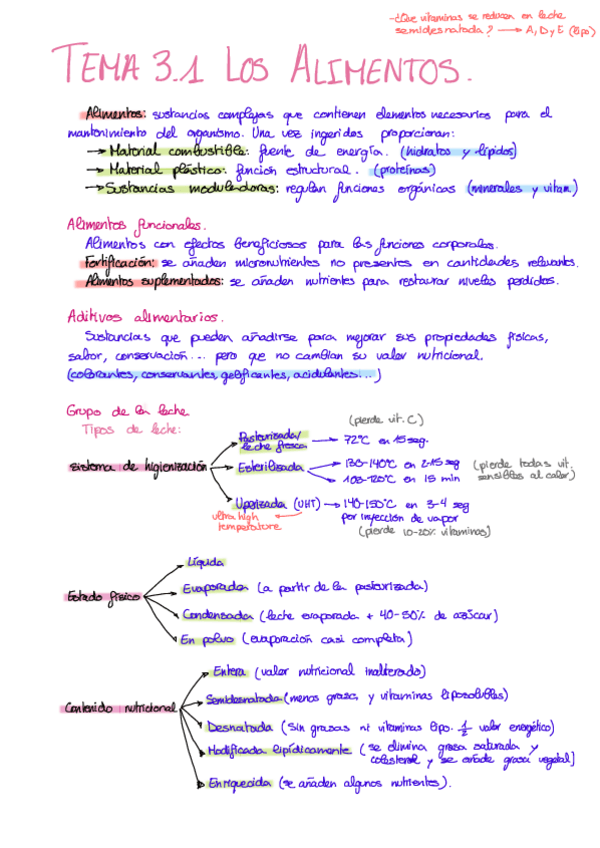 -¿Que vitaminas se reducen en leche
semidesnatada? → A, D y E (lipo)
TEMA 3.1 LOS ALIMENTOS.
Alimentos: sustancias complejas que contienen elementos necesarios para el
mantenimiento del organismo. Una vez ingeridos proporcionan:
→ Material combustible: fuente de energía. (hidratos y lípidos)
→ Material plástico: función estructural. (proteínas)
→ Sustancias moduladoras: regulan funciones orgánicas (minerales y vitam.)
Alimentos funcionales.
Alimentos con efectos beneficiosos para las funciones corporales.
Fortificación: se añaden micronutrientes no presentes en cantidades relevantes.
Alimentos suplementados: se añaden nutrientes para restaurar niveles perdidos.
Aditivos alimentarios.
Sustancias que pueden añadirse para mejorar sus propiedades físicas,
sabor, conservación... pero que no cambian su valor nutricional.
(colorantes, conservantes, gelificantes, acidulantes...)
Grupo de la leche
Tipos de leche:
sistema de higienización
(pierde vit. C)
Pasteurizada/
leche fresca → 72°C en 15 seg.
Esterilizada → 130-140°C en 2-15 seg
→ 103-120°C en 15 min
(pierde todas vit.
sensibles al calor)
Uperizada (UHT) → 140-150°C en 3-4 seg
por inyección de vapor
ultra high
temperature
(pierde 10-20% vitaminas)
Estado físico
Líquida
Evaporada (a partir de la pasteurizada)
Condensada (leche evaporada + 40-50% de azúcar)
En polvo (evaporación casi completa)
Contenido nutricional
Entera (valor nutricional inalterado)
Semidesnatada (menos grasa, y vitaminas liposolubles)
Desnatada (Sin grasas ni vitaminas lipo. 1/2 valor energético)
Modificada lipídicamente (se elimina grasa saturada y
colesterol y se añade grasa vegetal)
Enriquecida (se añaden algunos nutrientes).